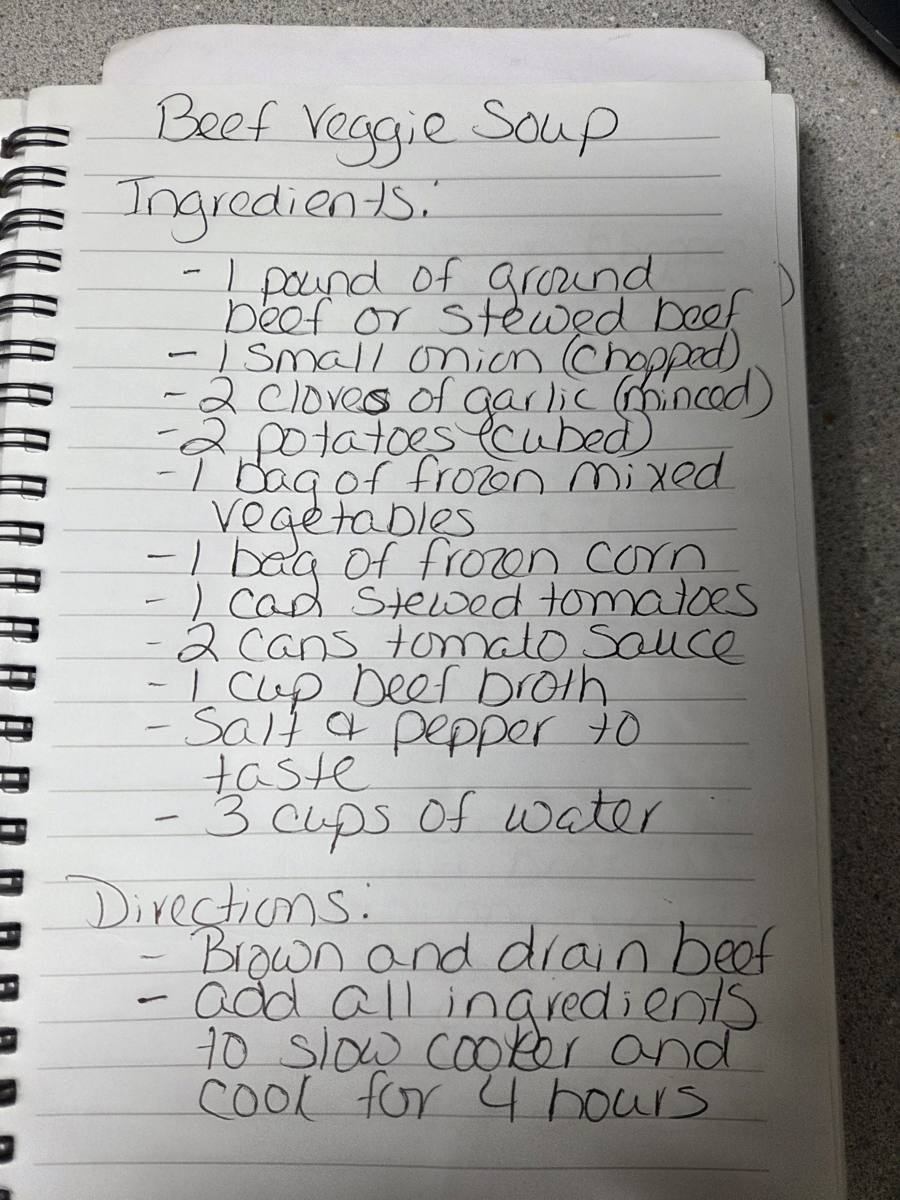 Beef Veggie Soup
Ingredients:
- 1 pound of ground
beef or stewed beef
- 1 small onion (chopped)
- 2 cloves of garlic (minced)
- 2 potatoes (cubed)
- 1 bag of frozen mixed
vegetables
- 1 bag of frozen corn
- 1 can stewed tomatoes
- 2 cans tomato sauce
- 1 cup beef broth
- Salt & pepper to
taste
- 3 cups of water
Directions:
- Brown and drain beef
- add all ingredients
to slow cooker and
cook for 4 hours